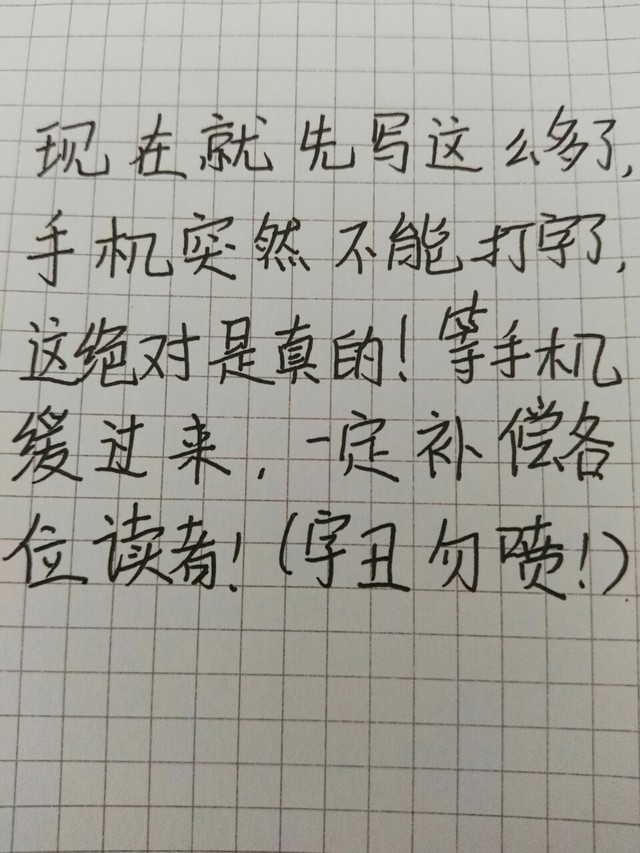 现在就先写这么多了,
手机突然不能打字了,
这绝对是真的!等手机
缓过来,一定补偿各
位读者!(字丑勿喷!)